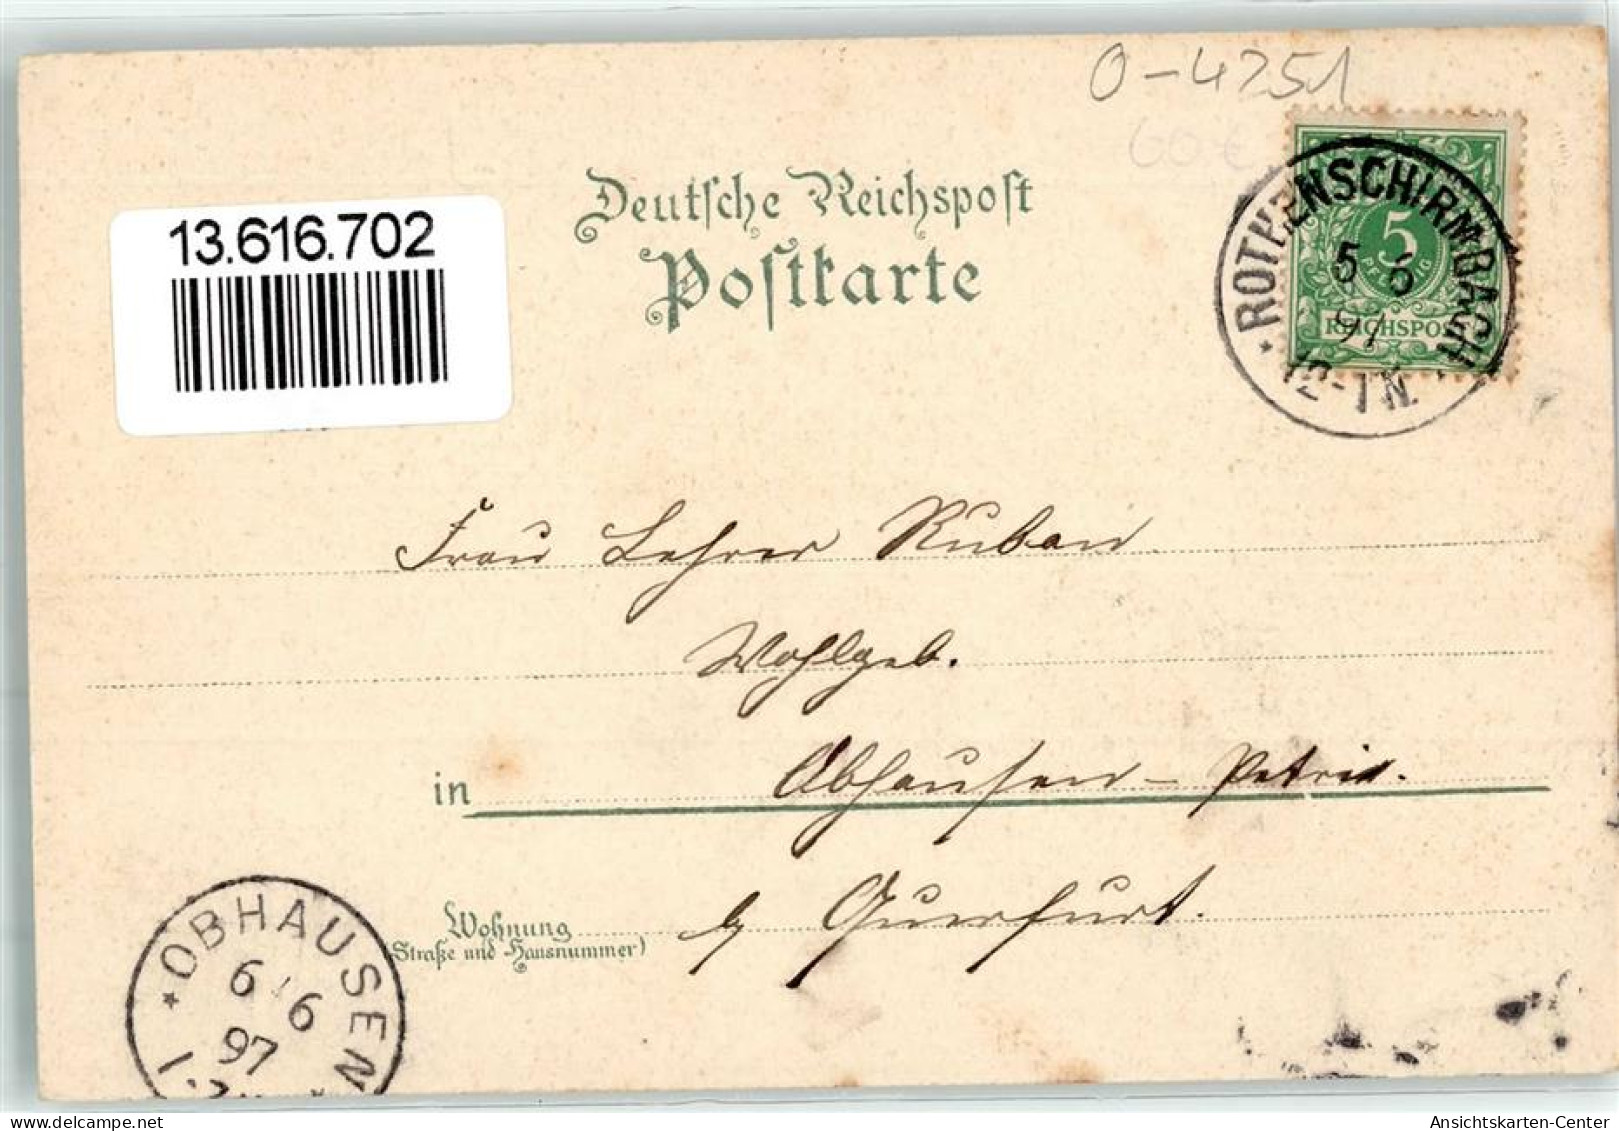 O-4251
60 €
13.616.702
Deutsche Reichspost
Postkarte
ROTHENSCHIRMBACH
5 6
97
12-1 N.
5
PFENNIG
REICHSPOST
Frau Lehrer Ruban
Wohlgeb.
in Obhausen-Petri.
b/ Querfurt.
Wohnung
(Straße und Hausnummer)
OBHAUSEN
6 6
97
Ansichtskarten-Center